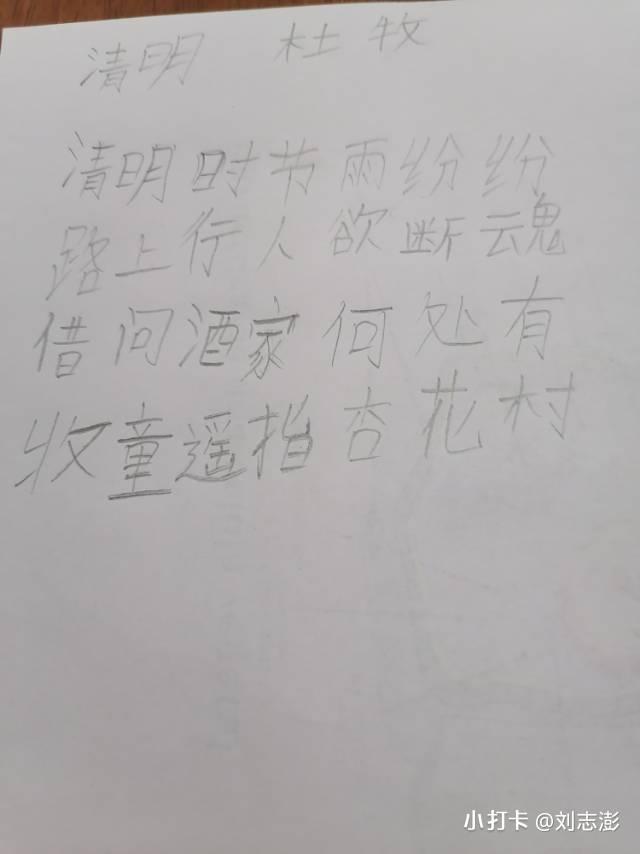 清明 杜牧
清明时节雨纷纷
路上行人欲断魂
借问酒家何处有
牧童遥指杏花村
小打卡 @刘志澎